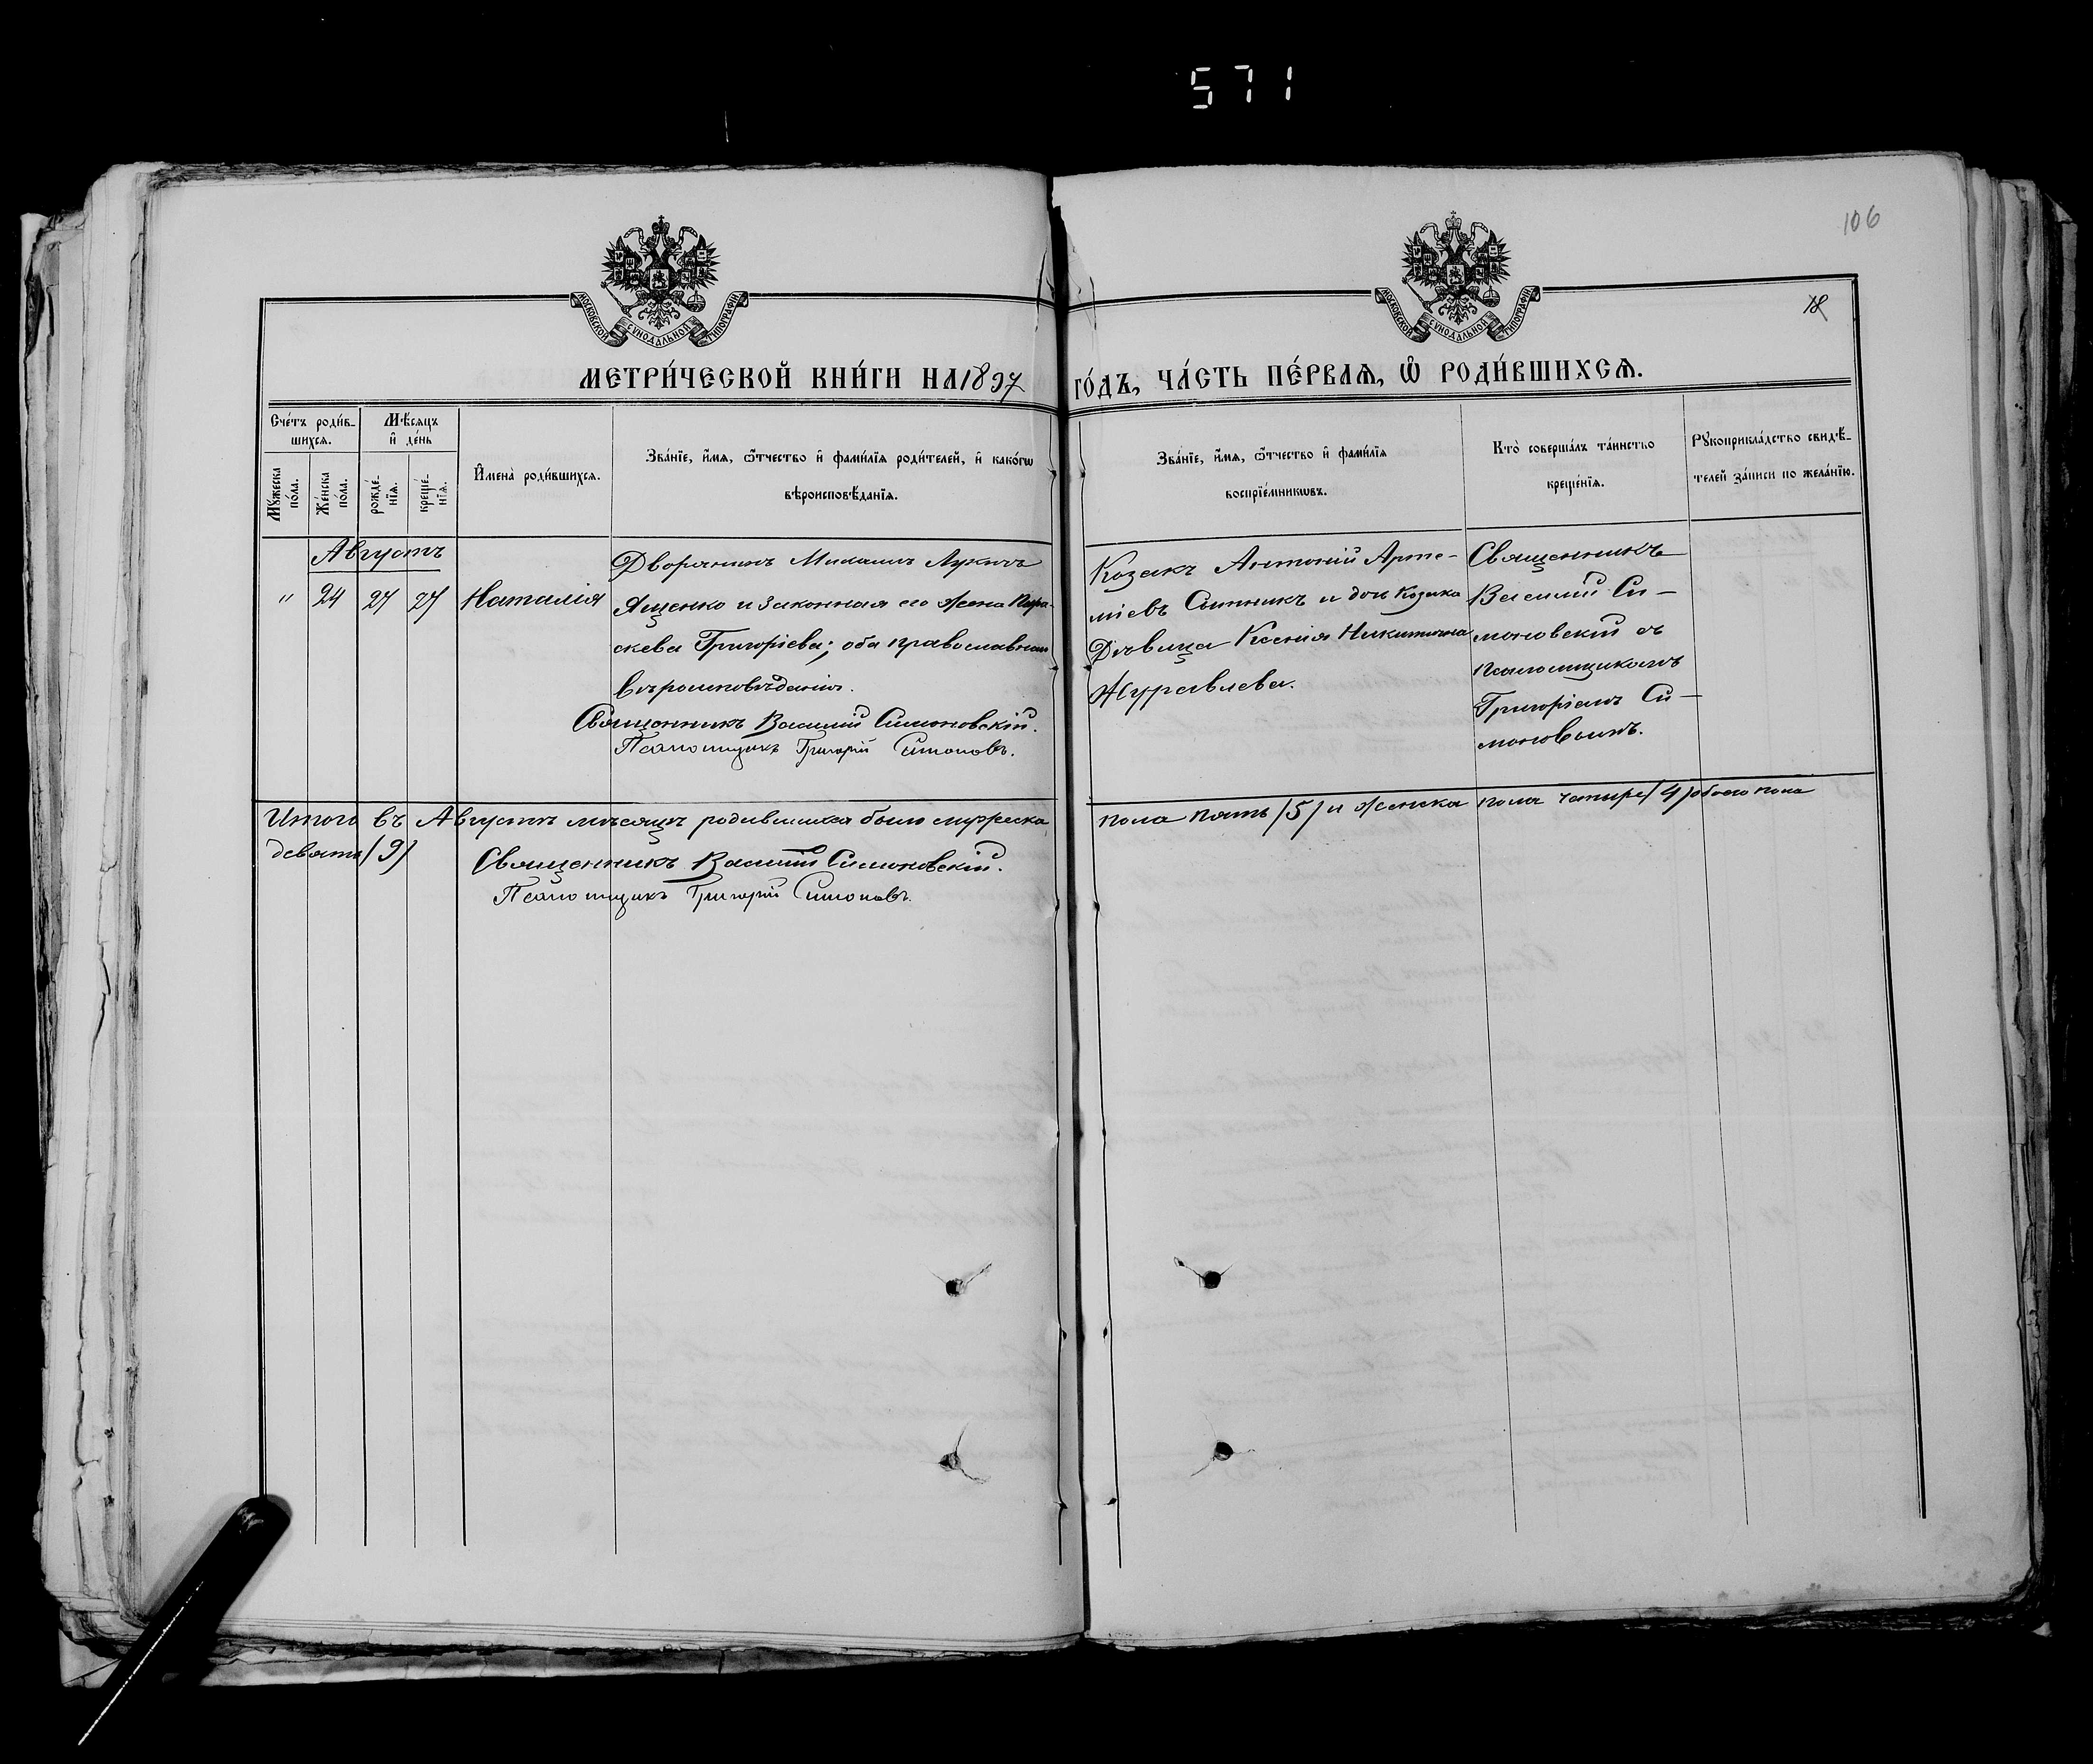 571
106
18
МОСКОВСКОЙ СУНОДАЛЬНОЙ ТИПОГРАФІИ
МОСКОВСКОЙ СУНОДАЛЬНОЙ ТИПОГРАФІИ
МЕТРИ́ЧЕСКОЙ КНИ́ГИ НА 1897 ГО́ДЪ, ЧА́СТЬ ПЕ́РВАѦ, Ѡ РОДИ́ВШИХСѦ.
Сче́тъ роди́в-
шихсѧ.
Мꙋжеска
по́ла.
Же́нска
по́ла.
Мѣ́сѧцъ
и҆ де́нь
рожде́-
нїѧ.
креще́-
нїѧ.
И҆мена̀ роди́вшихсѧ.
Зва́нїе, и҆́мѧ, ѻ҆́тчество и҆ фами́лїѧ роди́телей, и҆ како́гѡ
вѣроисповѣ́данїѧ.
Зва́нїе, и҆́мѧ, ѻ҆́тчество и҆ фами́лїѧ
воспрїе́мникѡвъ.
Кто̀ соверша́лъ та́инство
креще́нїѧ.
Рꙋкоприкла́дство свидѣ́-
телей за́писи по жела́нїю.
Августъ
" 24 27 27 Наталія
Дворянинъ Михаилъ Лукинъ
Ященко и законная его жена Пара-
скева Григоріева; оба православнаго
вѣроисповѣданія.
Священникъ Василій Симоновскій.
Псаломщикъ Григорій Симоновъ.
Козакъ Антоній Арте-
міевъ Сытникъ и дочь Козака
Дѣвица Ксенія Никитична
Журавлева.
Священникъ
Василій Си-
моновскій съ
псаломщикомъ
Григоріемъ Си-
моновымъ.
Итого въ Августѣ мѣсяцѣ родившихся было мужеска пола пять /5/ и женска пола четыре /4/ обоего пола
девять /9/
Священникъ Василій Симоновскій.
Псаломщикъ Григорій Симоновъ.